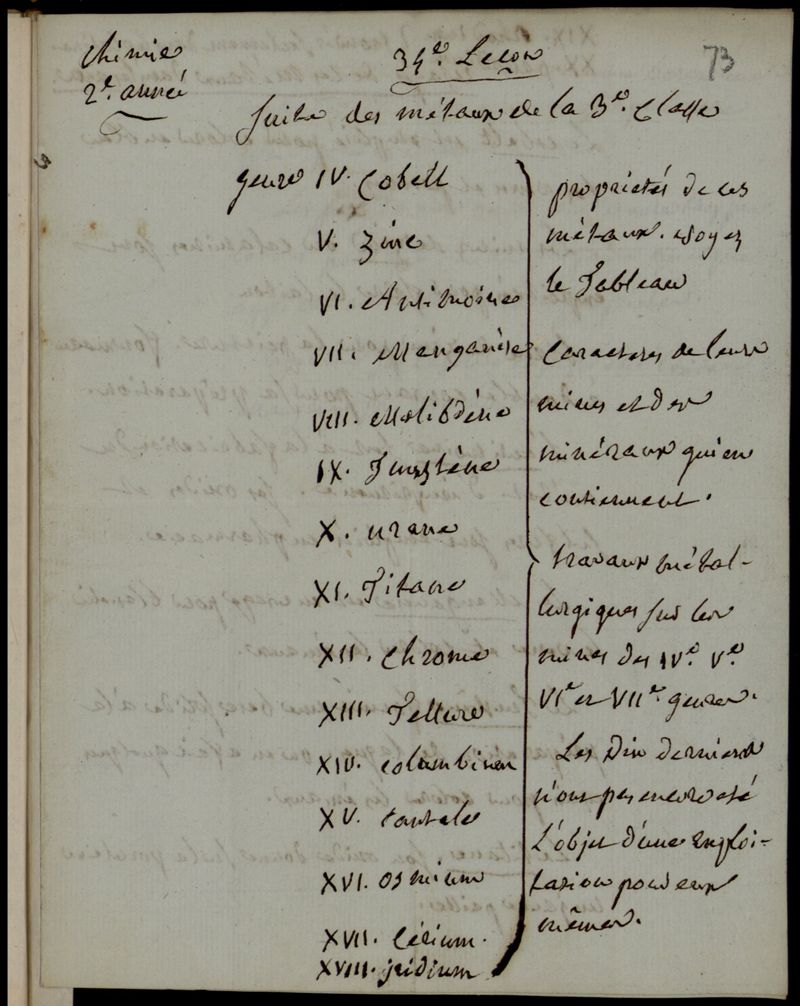 chimie
2e. année
34e. Lecon
73
suite des métaux de la 3e. Classe
genre IV. Cobalt
V. Zinc
VI. Antimoine
VII. Manganèse
VIII. Molibdène
IX. Tungstène
X. urane
XI. Titane
XII. chrome
XIII. Tellure
XIV. columbium
XV. tantale
XVI. osmium
XVII. Cérium.
XVIII. iridium
propriétés de ces
métaux. voyez
le Tableau
Caracteres de leurs
mines et des
minéraux qui en
contiennent.
travaux métal-
lurgiques sur les
mines des IVe. Ve.
VIe et VIIe. genres.
Les Dix derniers
n'ont pas encore été
L'objet d'une exploi-
tation pour eux
mêmes.